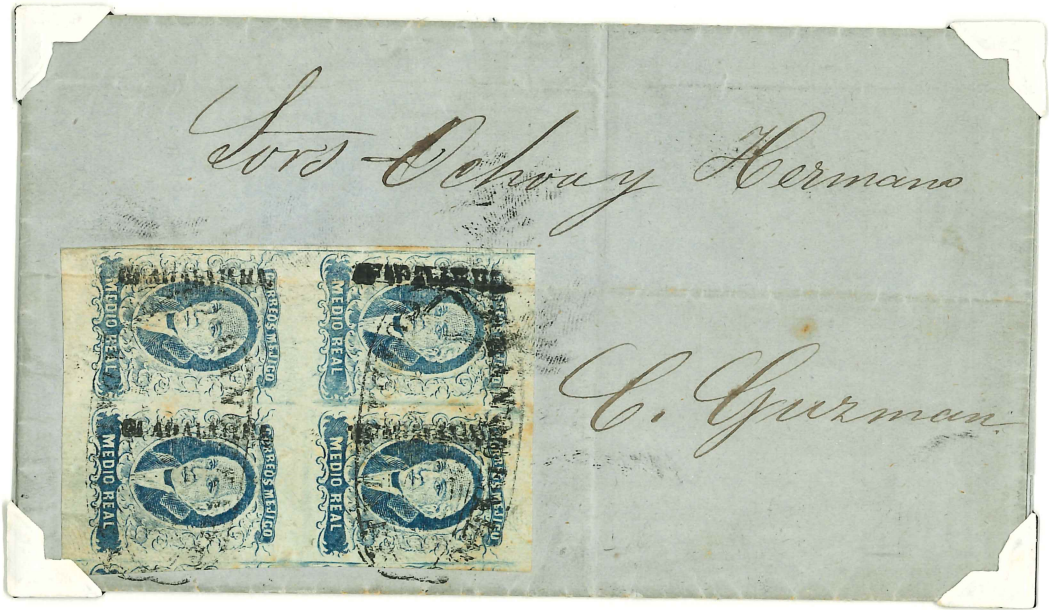 Sors Ochoa y Hermano
C. Guzman
GUADALAJARA
MEDIO REAL
CORREOS MEJICO
GUADALAJARA
MEDIO REAL
CORREOS MEJICO
GUADALAJARA
MEDIO REAL
CORREOS MEJICO
GUADALAJARA
MEDIO REAL
CORREOS MEJICO